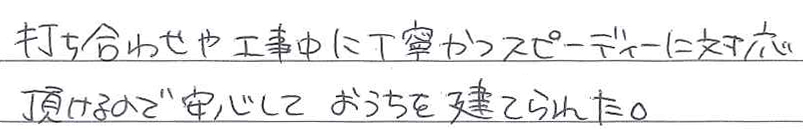 打ち合わせや工事中に丁寧かつスピーディーに対応
頂けるので安心しておうちを建てられた。